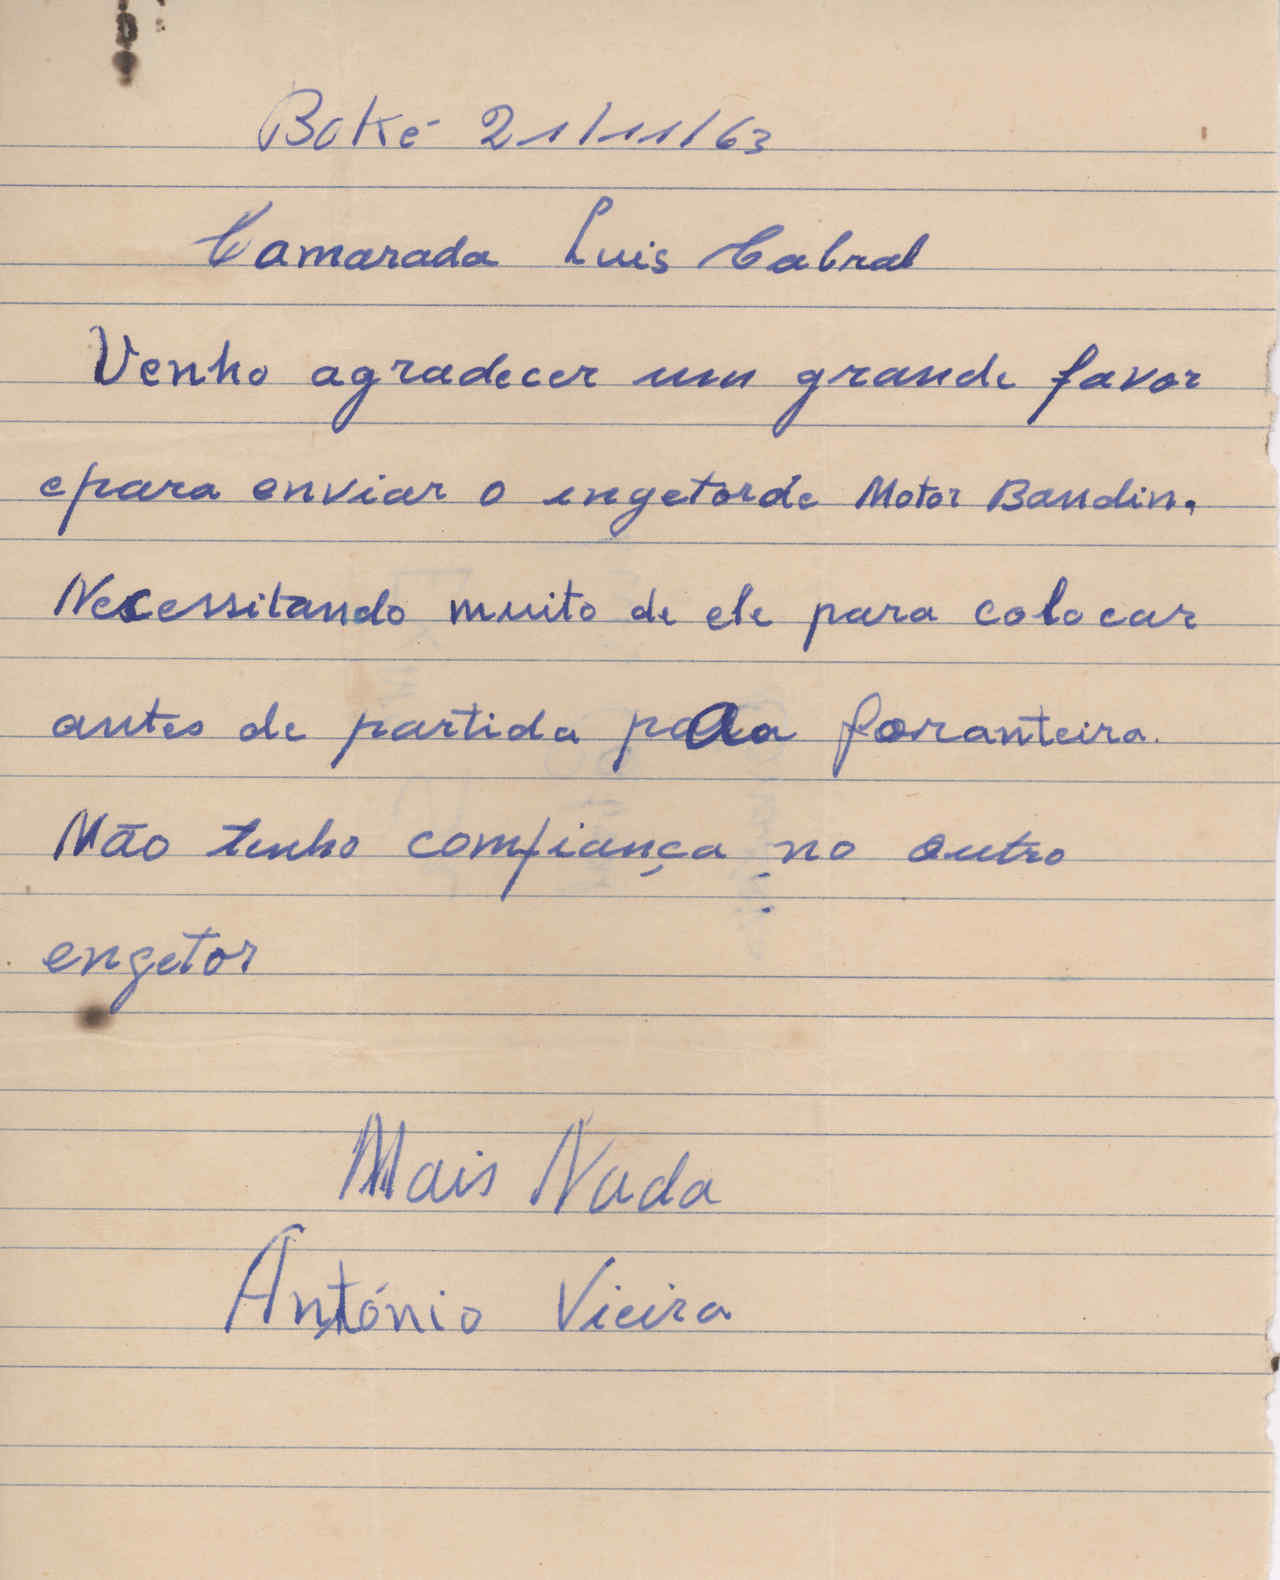 Boké 21/11/63
Camarada Luis Cabral
Venho agradecer um grande favor
epara enviar o ingetorde Motor Bandin.
Necessitando muito de ele para colocar
antes de partida para foranteira.
Mão tenho comfiança no outro
engetor
Mais Nada
António Vieira